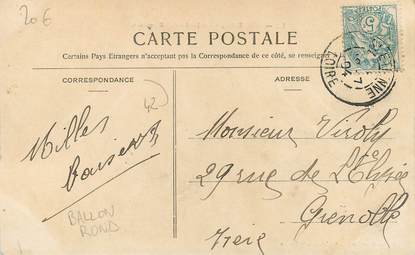 20€
CARTE POSTALE
Certains Pays Etrangers n'acceptent pas la Correspondance de ce côté, se renseigner
CORRESPONDANCE
ADRESSE
42
LOIRE
Milles
Baisers
BALLON
ROND
Monsieur
29 rue de
Grenoble
Isère